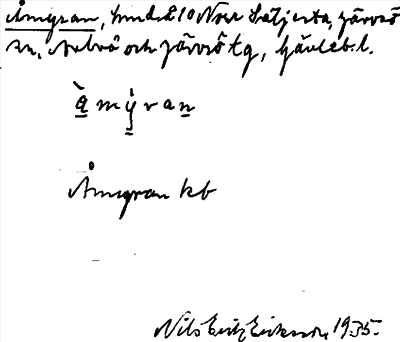 Åmyran, hmd 810 N om Sätjerta, Järvsö
sn, Arbrå och Järvsö tg, Gävleb. l.
à m ẏ r a n
Åmyran kb
Nils Erik Eriksson, 1935.